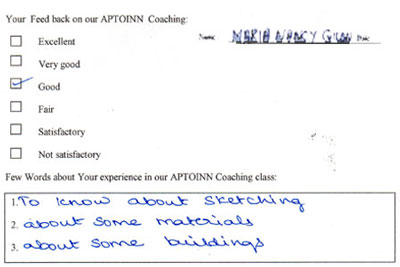 Your Feed back on our APTOINN Coaching:
Excellent
Name: MARIA NANCY Date:
Very good
Good
Fair
Satisfactory
Not satisfactory
Few Words about Your experience in our APTOINN Coaching class:
1. To know about sketching
2. about some materials
3. about some buildings